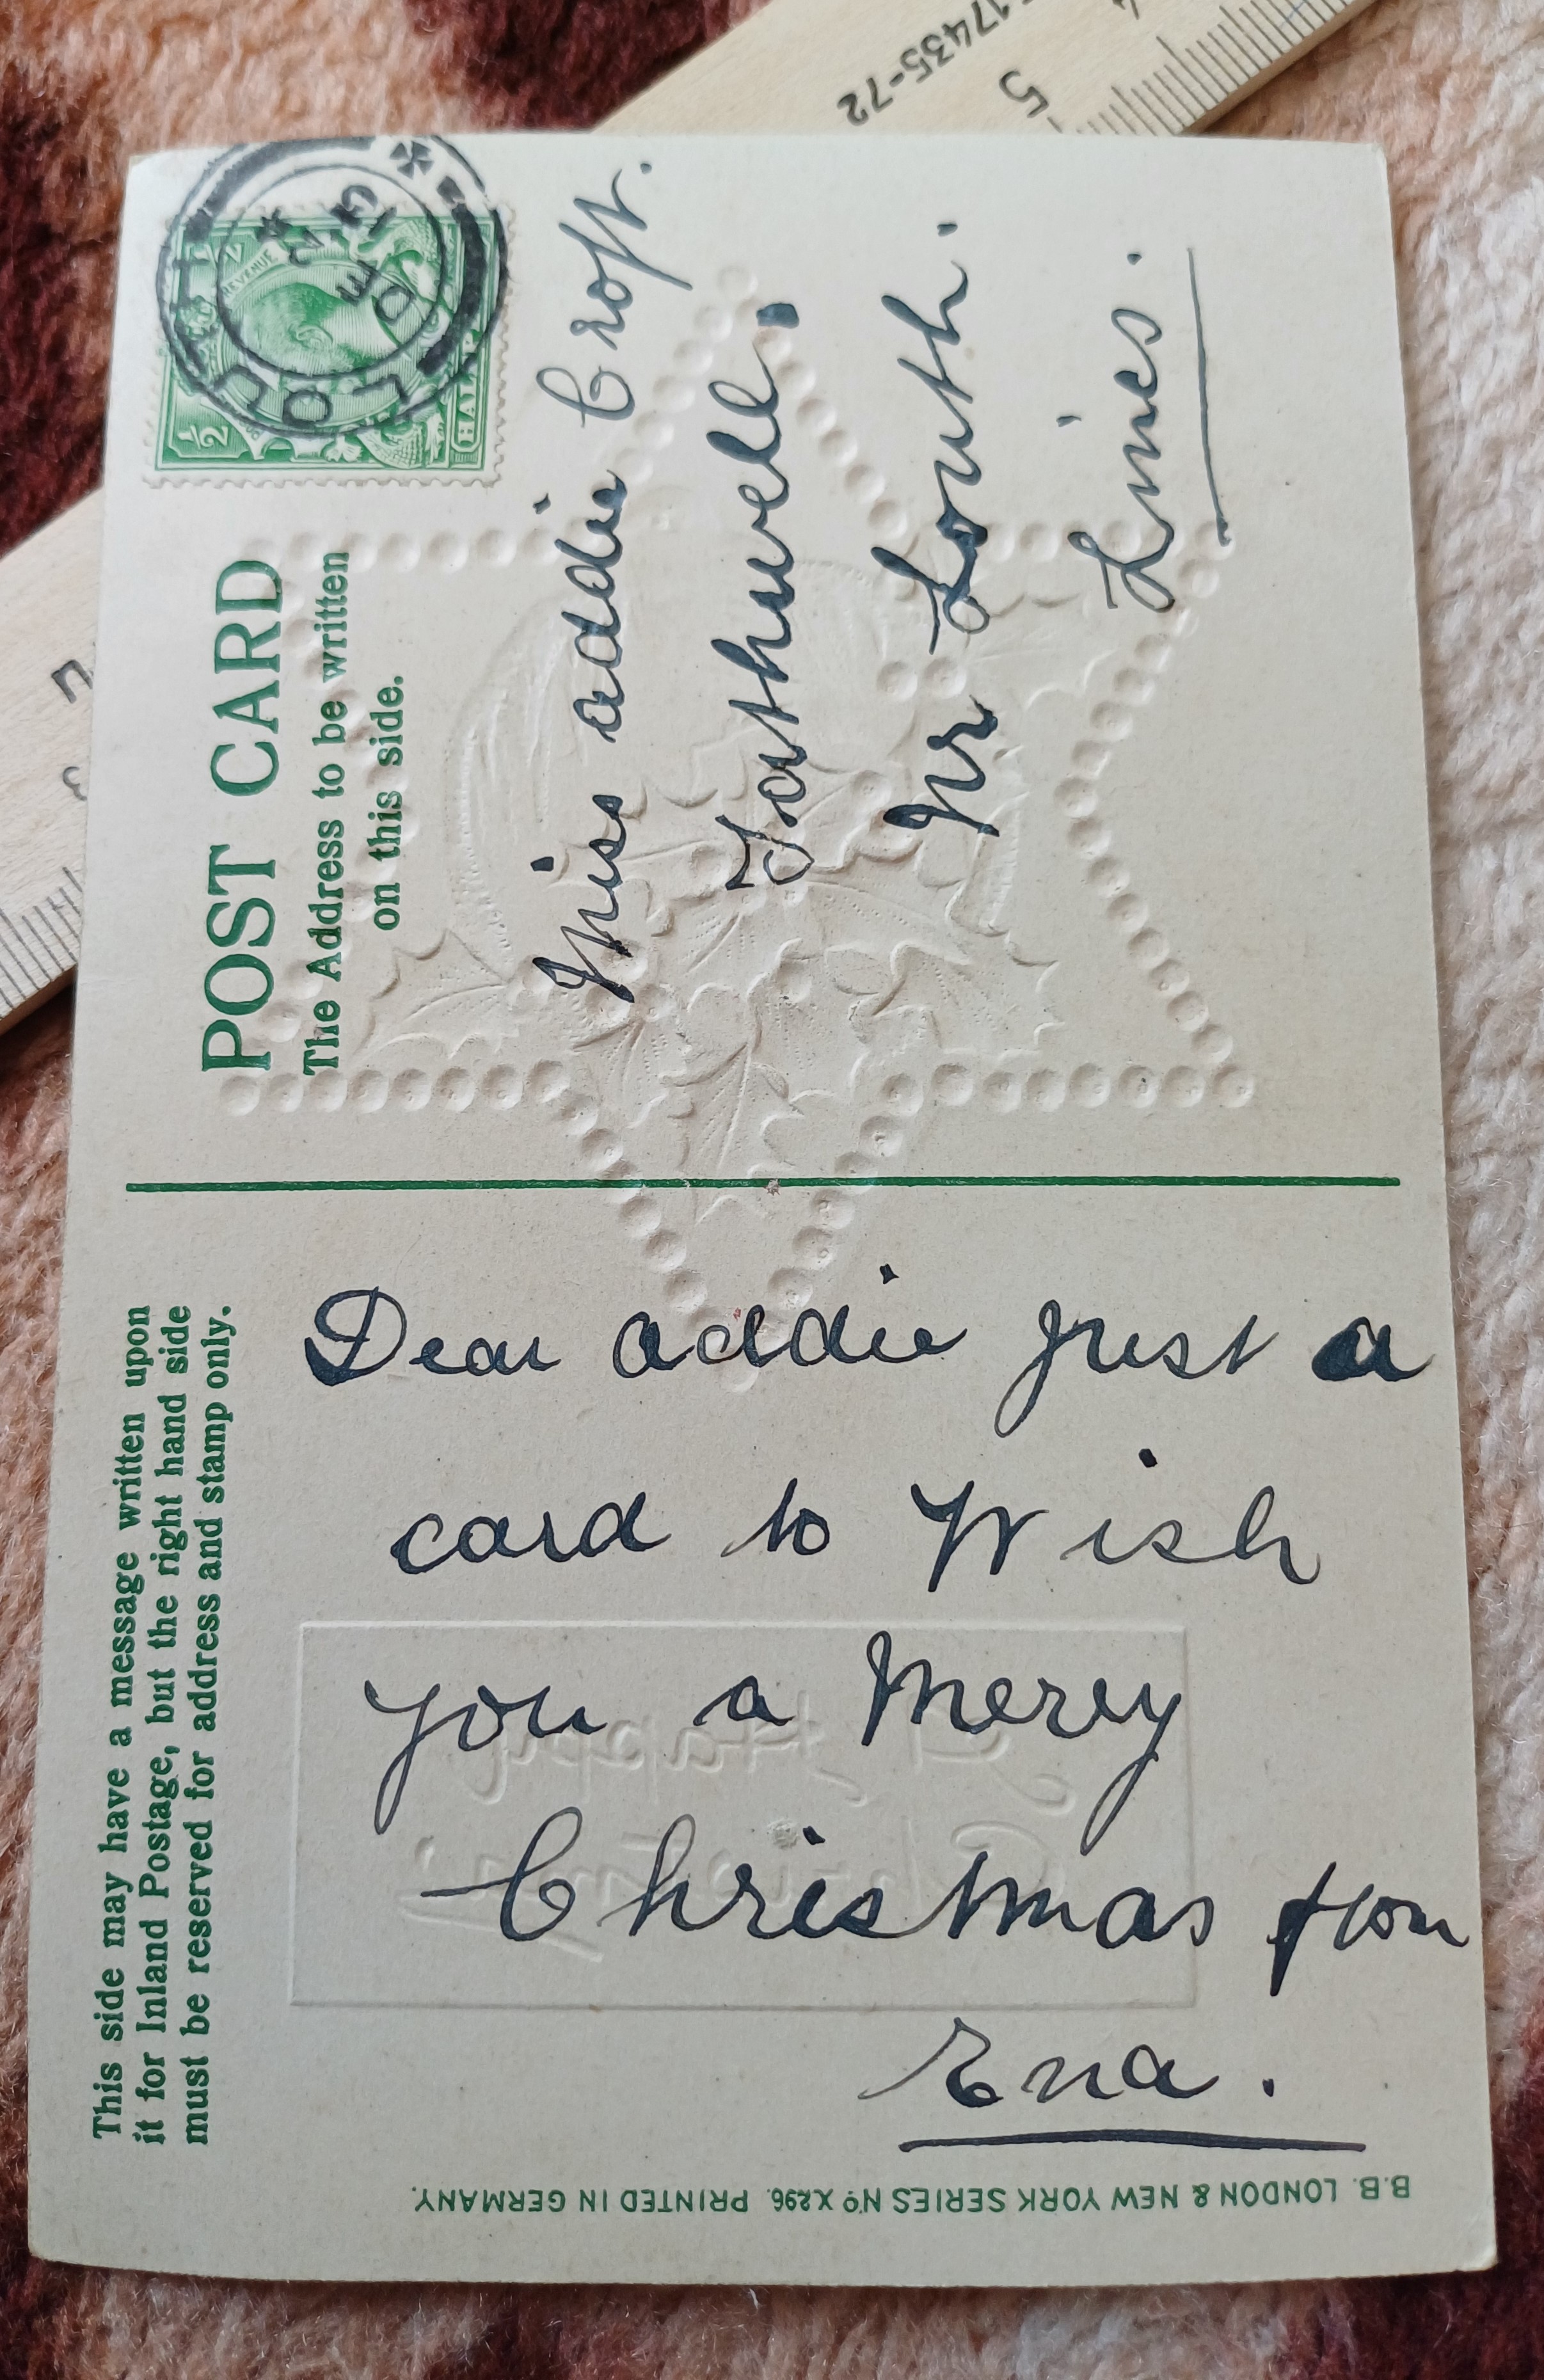 POST CARD
The Address to be written
on this side.
This side may have a message written upon
it for Inland Postage, but the right hand side
must be reserved for address and stamp only.
REVENUE
1/2
HALF
LOUTH
DE
24
13
Miss addie Croft.
Tathwell.
Nr Louth.
Lines.
Dear addie just a
card to Wish
you a Merry
Christmas from
Ena.
B.B. LONDON & NEW YORK SERIES Nº X296. PRINTED IN GERMANY.
A Happy
Christmas
17435-72
5